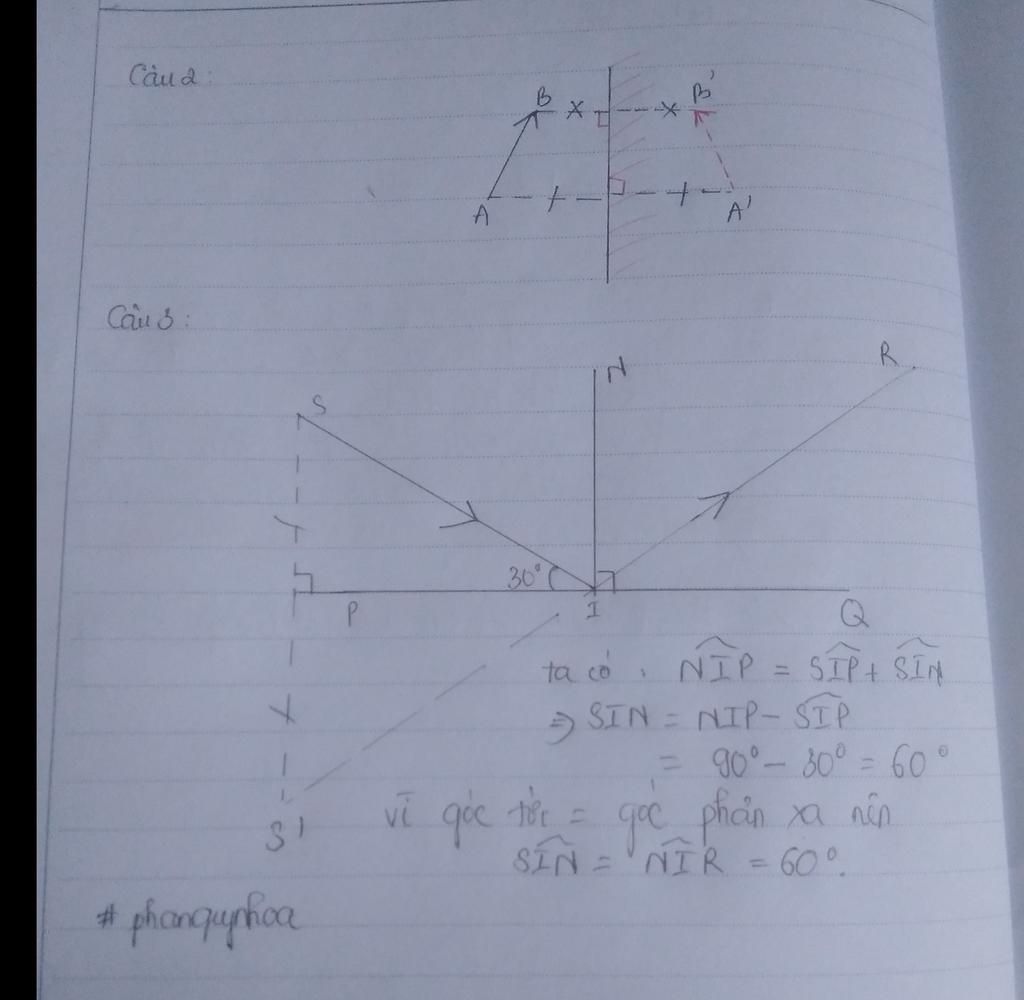 Câu 2:
B
B'
A
A'
Câu 3:
S
N
R
30°
P
I
Q
ta có: NIP = SIP + SIN
⇒ SIN = NIP - SIP
= 90° - 30° = 60°
S'
vì góc tới = góc phản xạ nên
SIN = NIR = 60°.
# phanquynhoa